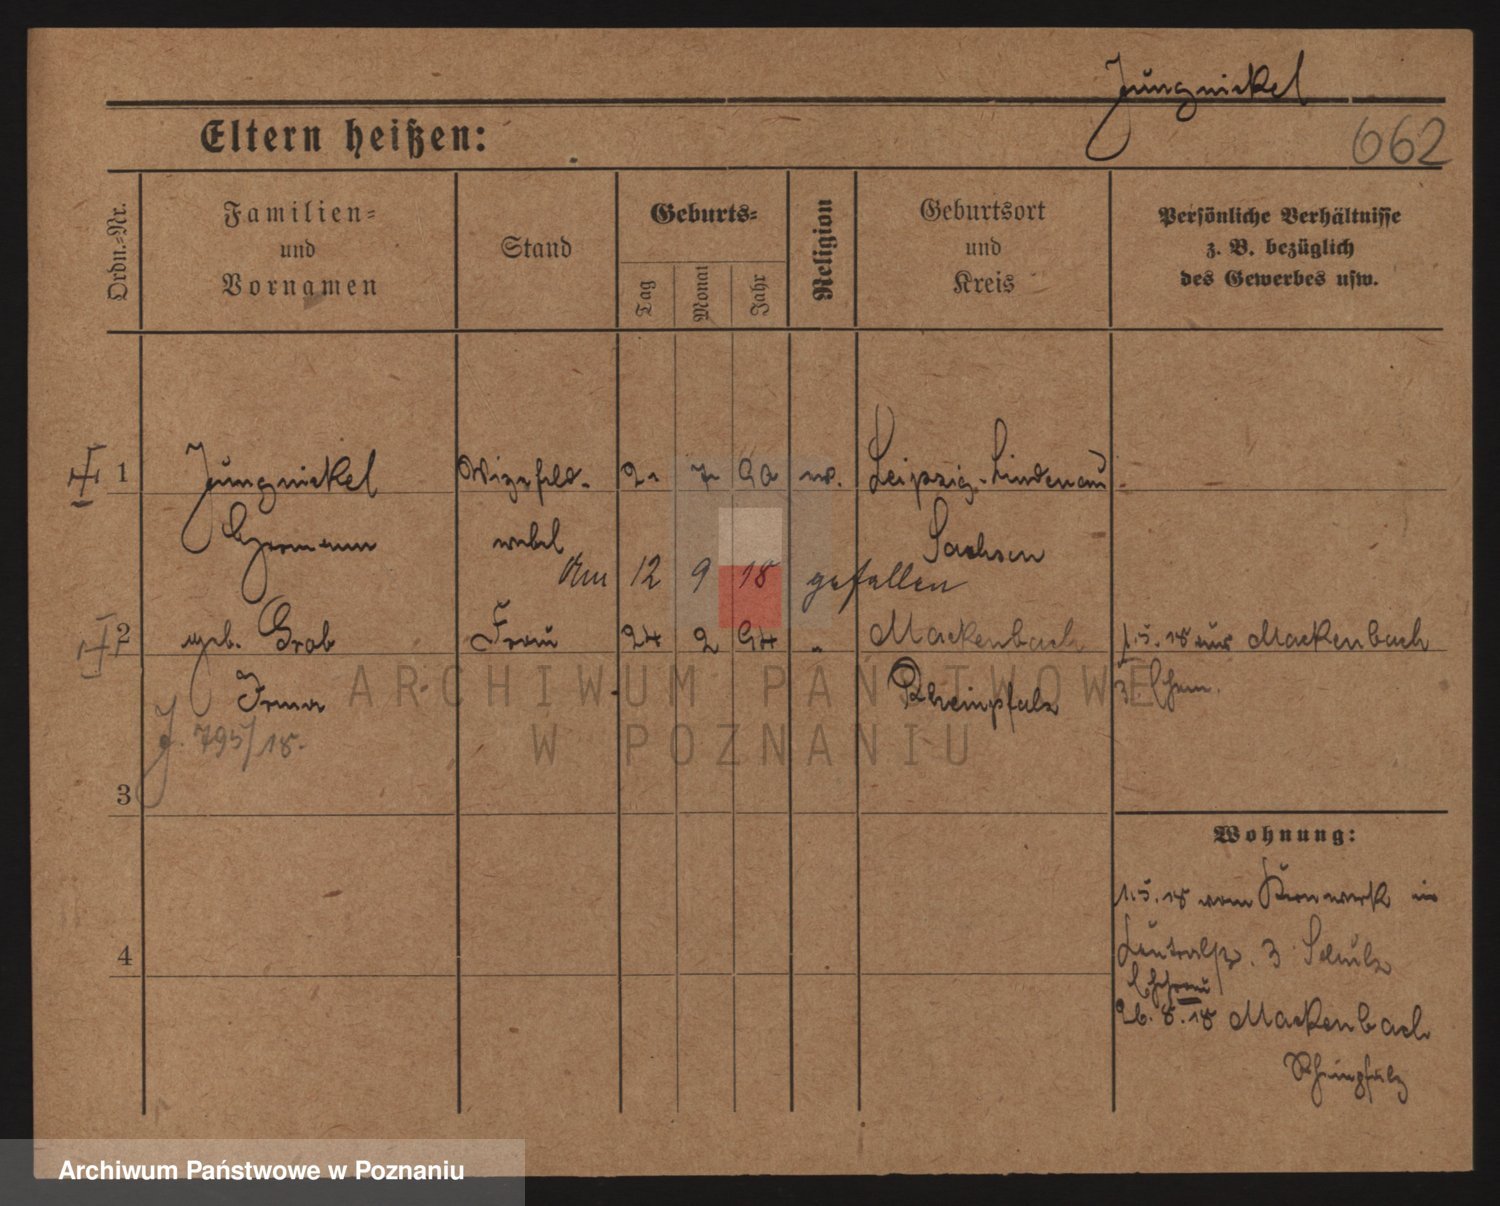 Jungnickel
Eltern heißen:
662
Ordn.-Nr.
Familien-
und
Vornamen
Stand
Geburts-
Tag
Monat
Jahr
Religion
Geburtsort
und
Kreis
Persönliche Verhältnisse
z. B. bezüglich
des Gewerbes usw.
1 Jungnickel Vizefeld- 2. 7. 90 Leipzig-Lindenau
Hermann webel Sachsen
Am 12 9 18 gefallen
2 geb. Grob Frau 24 2 94 " Mackenbach 1.5.18 aus Mackenbach
Irma Rheinpfalz
J. 795/18.
3
Wohnung:
1.5.18 vom Kernwerk in
3 Schulz
4
Ehefrau
26.8.18 Mackenbach
Rheinpfalz
ARCHIWUM PAŃSTWOWE
W POZNANIU
Archiwum Państwowe w Poznaniu